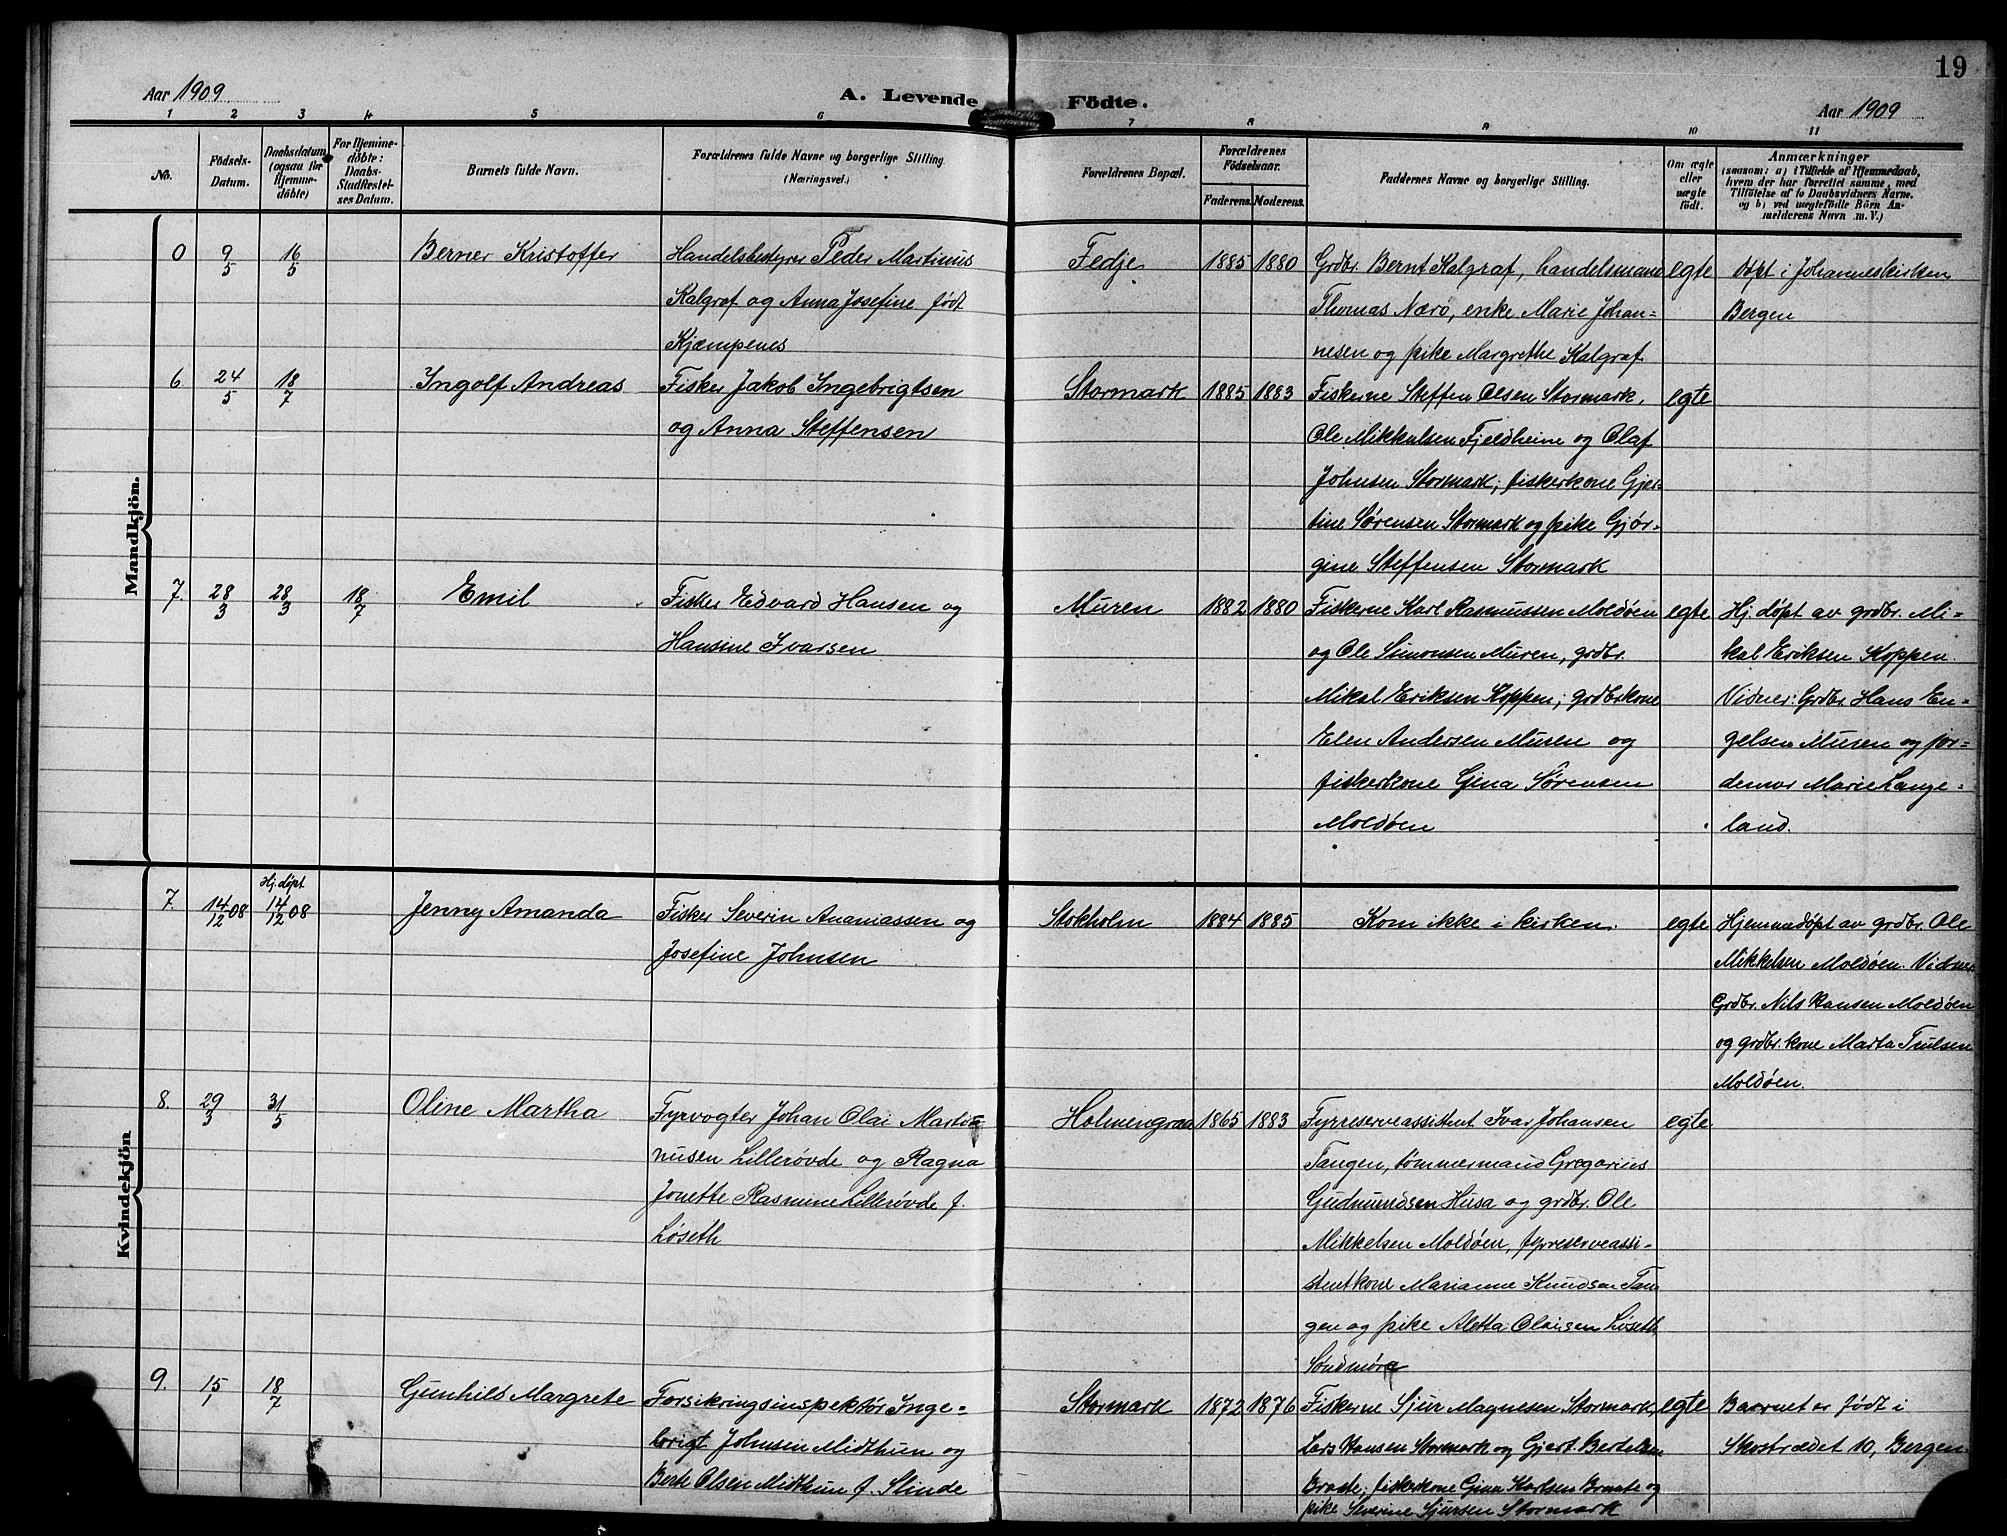 19
Aar 1909
A. Levende Födte.
Aar 1909
1 2 3 4 5 6 7 8 9 10 11
No.
Födsels-
Datum.
Daabsdatum
(ogsaa for
Hjemme-
döbte)
For Hjemme-
döbte:
Daabs-
Stadfæstel-
ses Datum.
Barnets fulde Navn.
Forældrenes fulde Navne og borgerlige Stilling.
(Næringsvei.)
Forældrenes Bopæl.
Forældrenes
Födselsaar.
Faderens. Moderens.
Faddernes Navne og borgerlige Stilling.
Om ægte
eller
uægte
födt.
Anmærkninger
(saasom: a) i Tilfælde af Hjemmedaab,
hvem der har forrettet samme, med
Tilföielse af to Daabsvidners Navne,
og b) ved uægtefödte Börn An-
melderens Navn m. V.)
Mandkjön.
0
9/5
16/5
Berner Kristoffer
Handelsbestyrer Peder Martinus
Kalgraf og Anna Josefine født
Kjæmpenes
Fedje
1885
1880
Grdbr. Bernt Kalgraf, handelsmann
Thomas Nærø, enke Marie Johan-
nesen og pike Margrethe Kalgraf
egte
Døpt i Johanneskirken
Bergen
6.
24/5
18/7
Ingolf Andreas
Fisker Jakob Ingebrigtsen
og Anna Steffensen
Stormark
1885
1883
Fiskerne Steffen Olsen Stormark,
Ole Mikkelsen Fjeldheim og Olaf
Johnsen Stormark; fiskerkone Gjer-
tine Sørensen Stormark og pike Gjør-
gine Steffensen Stormark
egte
7.
28/3
28/3
18/7
Emil
Fisker Edvard Hansen og
Hansine Ivarsen
Muren
1882
1880
Fiskerne Karl Rasmussen Moldøen
og Ole Simonsen Muren, grdbr.
Mikal Eriksen Koppen; grdbrkone
Elen Andersen Muren og
fiskerkone Gina Sørensen
Moldøen
egte
Hj. døpt av grdbr. Mi-
kal Eriksen Koppen.
Vidner: Grdbr. Hans En-
gelsen Muren og jor-
demor Marie Lange-
land.
Kvindekjön
7.
14/12 08
Hj. døpt
14/12 08
Jenny Amanda
Fisker Severin Ananiassen og
Josefine Johnsen
Stokholm
1884
1885
Kom ikke i kirken.
egte
Hjemmedøpt av grdbr. Ole
Mikkelsen Moldøen. Vidner:
Grdbr. Nils Hansen Moldøen
og grdbr. kone Marta Trulsen
Moldøen.
8.
29/3
31/5
Oline Martha
Fyrvogter Johan Olai Martin-
nusen Lillerøvde og Ragna
Jonette Rasmine Lillerøvde f.
Løseth
Holmengraa
1865
1883
Fyrreserveassistent Ivar Johansen
Tangen, tømmermand Gregorius
Gudmundsen Husa og grdbr. Ole
Mikkelsen Moldøen, fyrreserveassi-
stentkone Marianne Knudsen Tan-
gen og pike Aletta Olaisen Løseth
Søndmøre
egte
9.
15/1
18/7
Gunhild Margrete
Forsikringsinspektør Inge-
brigt Johnsen Midthun og
Berte Olsen Midthun f. Slinde
Stormark
1872
1876
Fiskerne Sjur Magnesen Stormark,
Lars Hansen Stormark og Gjert Bertelsen
Braate; fiskerkone Gina Karlsen Braate og
pike Severine Sjursen Stormark
egte
Baarnet er født i
Skostrædet 10, Bergen